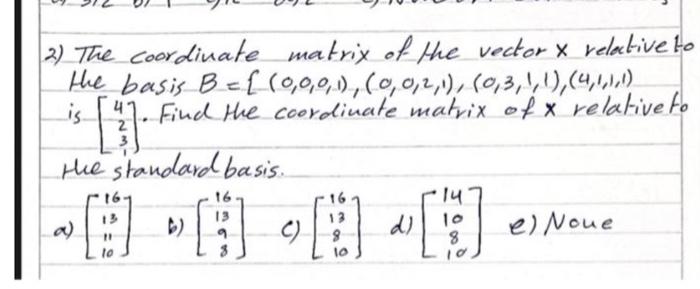 2) The coordinate matrix of the vector x relative to
the basis B = { (0,0,0,1), (0,0,2,1), (0,3,1,1), (4,1,1,1)
is [4 2 3 1]. Find the coordinate matrix of x relative to
the standard basis.
a) [16 13 11 10] b) [16 13 9 8] c) [16 13 8 10] d) [14 10 8 10] e) None